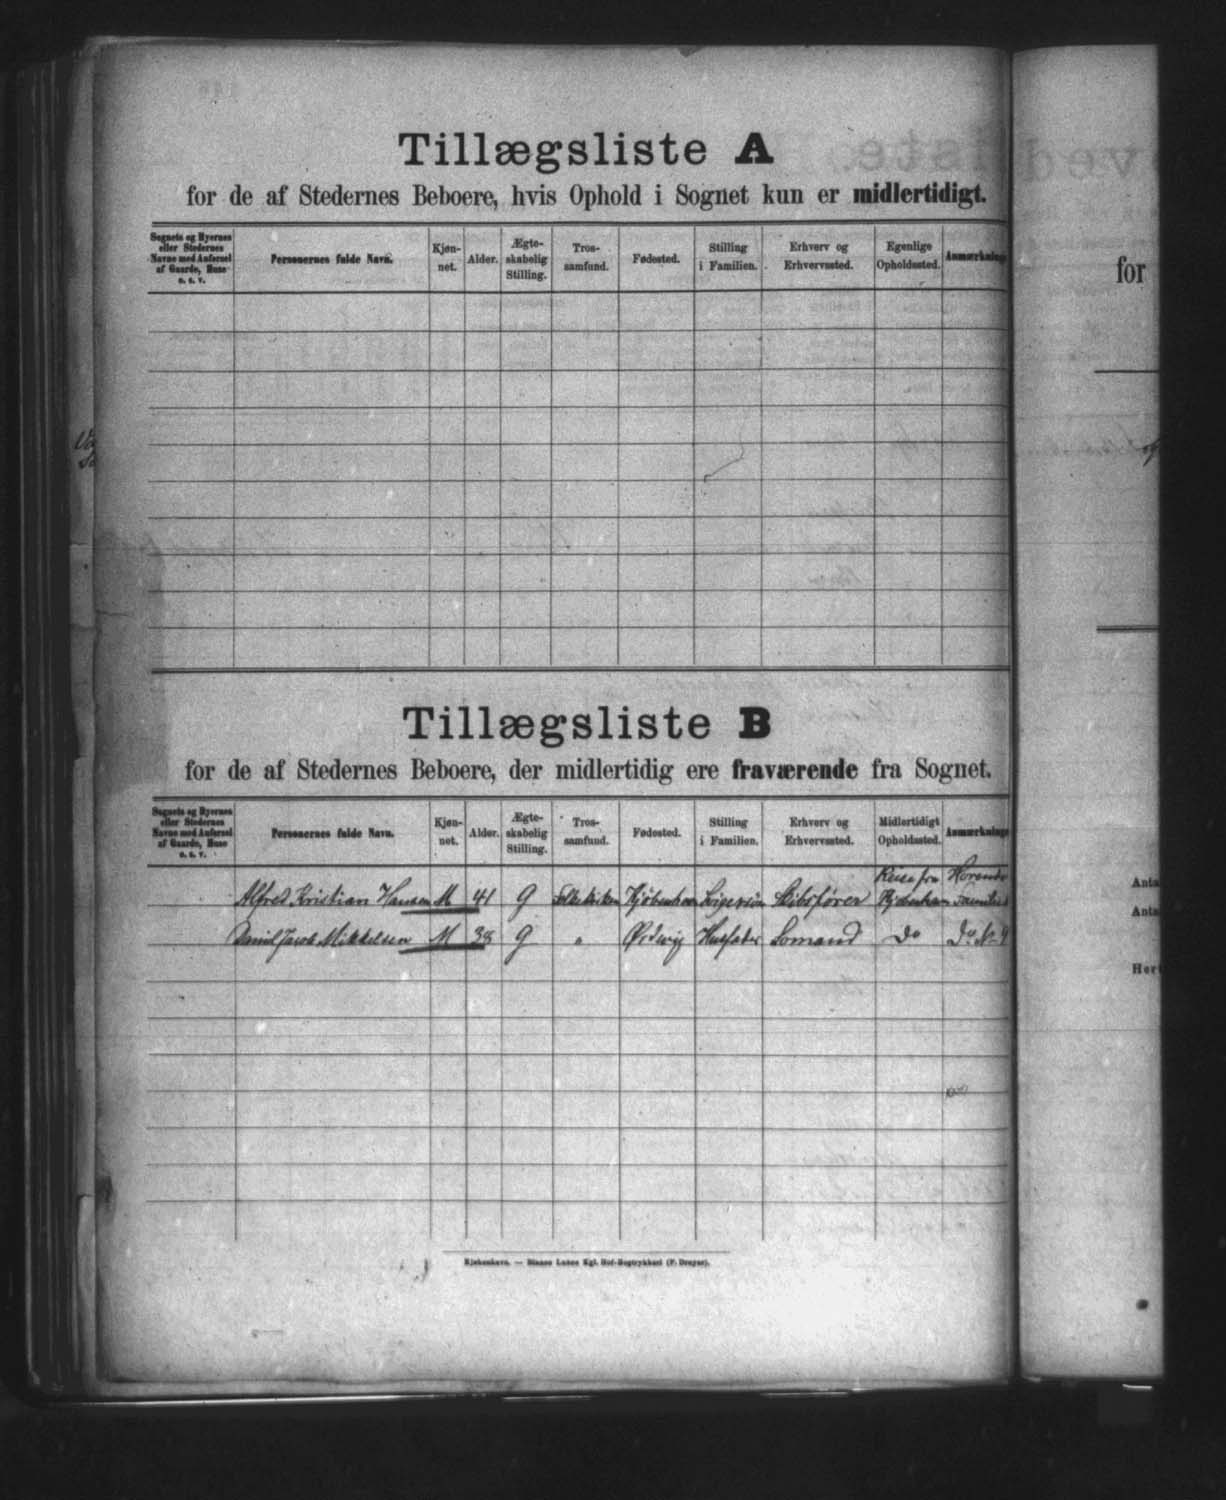 Tillægsliste A
for de af Stedernes Beboere, hvis Ophold i Sognet kun er midlertidigt.
Sognets og Byernes eller Stedernes Navne med Anførsel af Gaarde, Huse o. s. v. Personernes fulde Navn. Kjøn-net. Alder. Ægte-skabelig Stilling. Tros-samfund. Fødested. Stilling i Familien. Erhverv og Erhvervssted. Egenlige Opholdssted. Anmærkning
for
Tillægsliste B
for de af Stedernes Beboere, der midlertidig ere fraværende fra Sognet.
Sognets og Byernes eller Stedernes Navne med Anførsel af Gaarde, Huse o. s. v. Personernes fulde Navn. Kjøn-net. Alder. Ægte-skabelig Stilling. Tros-samfund. Fødested. Stilling i Familien. Erhverv og Erhvervssted. Midlertidigt Opholdssted. Anmærkning
Alfred Kristian Hansen M 41 G Folkekirken Kjøbenhavn Skibsfører Reise fra Kjøbenhavn
Daniel Jacob Mikkelsen M 38 G " Husfader Sømand Do Do No 9
Anta
Anta
Hert
Kjøbenhavn. — Bianco Lunos Kgl. Hof-Bogtrykkeri (F. Dreyer).